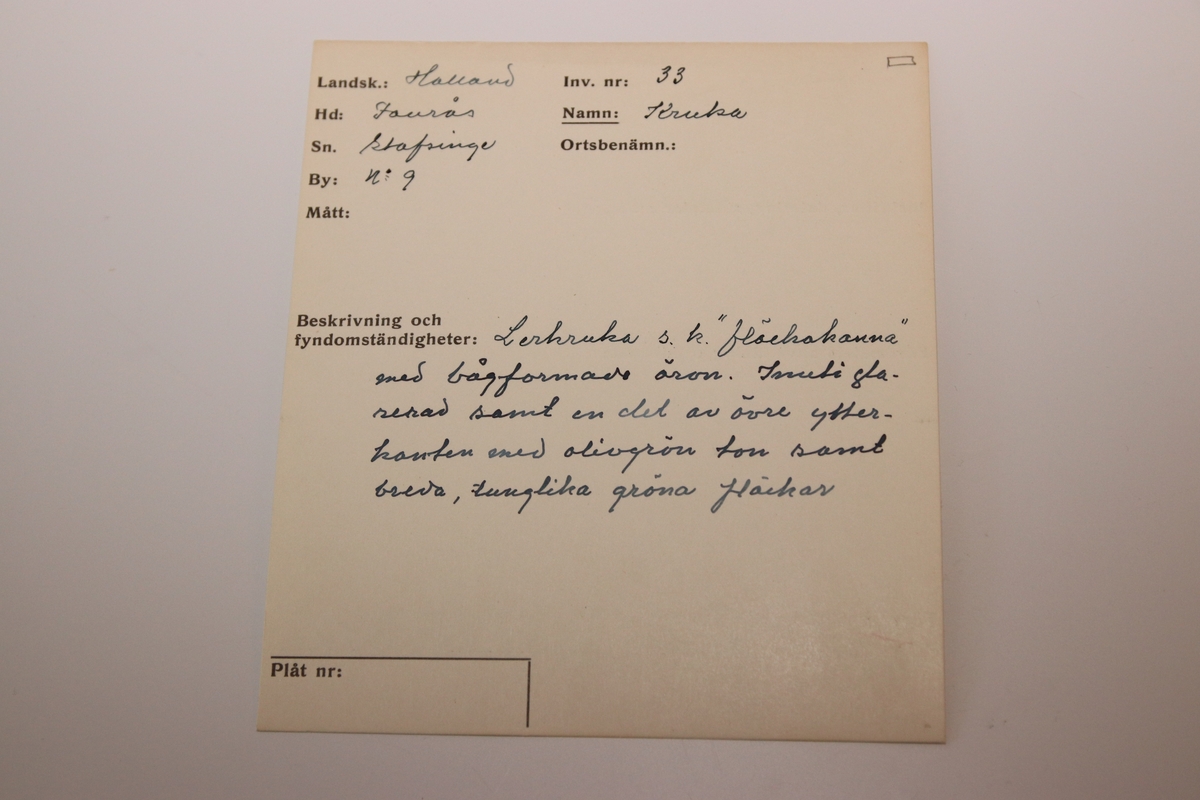 Landsk.: Halland
Inv. nr: 33
Hd: Faurås
Namn: Kruka
Sn. Stafsinge
Ortsbenämn.:
By: No 9
Mått:
Beskrivning och
fyndomständigheter: Lerkruka s. k. "fläckakanna"
med bågformade öron. Inuti gla-
serad samt en del av övre ytter-
kanten med olivgrön ton samt
breda, tunglika gröna fläckar
Plåt nr: